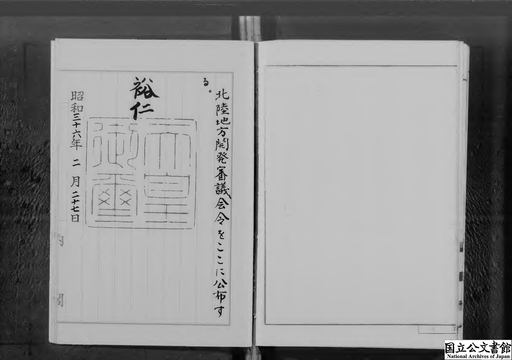 北陸地方開発審議会令をここに公布す
る。
裕仁
天皇
御璽
昭和三十六年二月二十七日
内閣
国立公文書館
National Archives of Japan